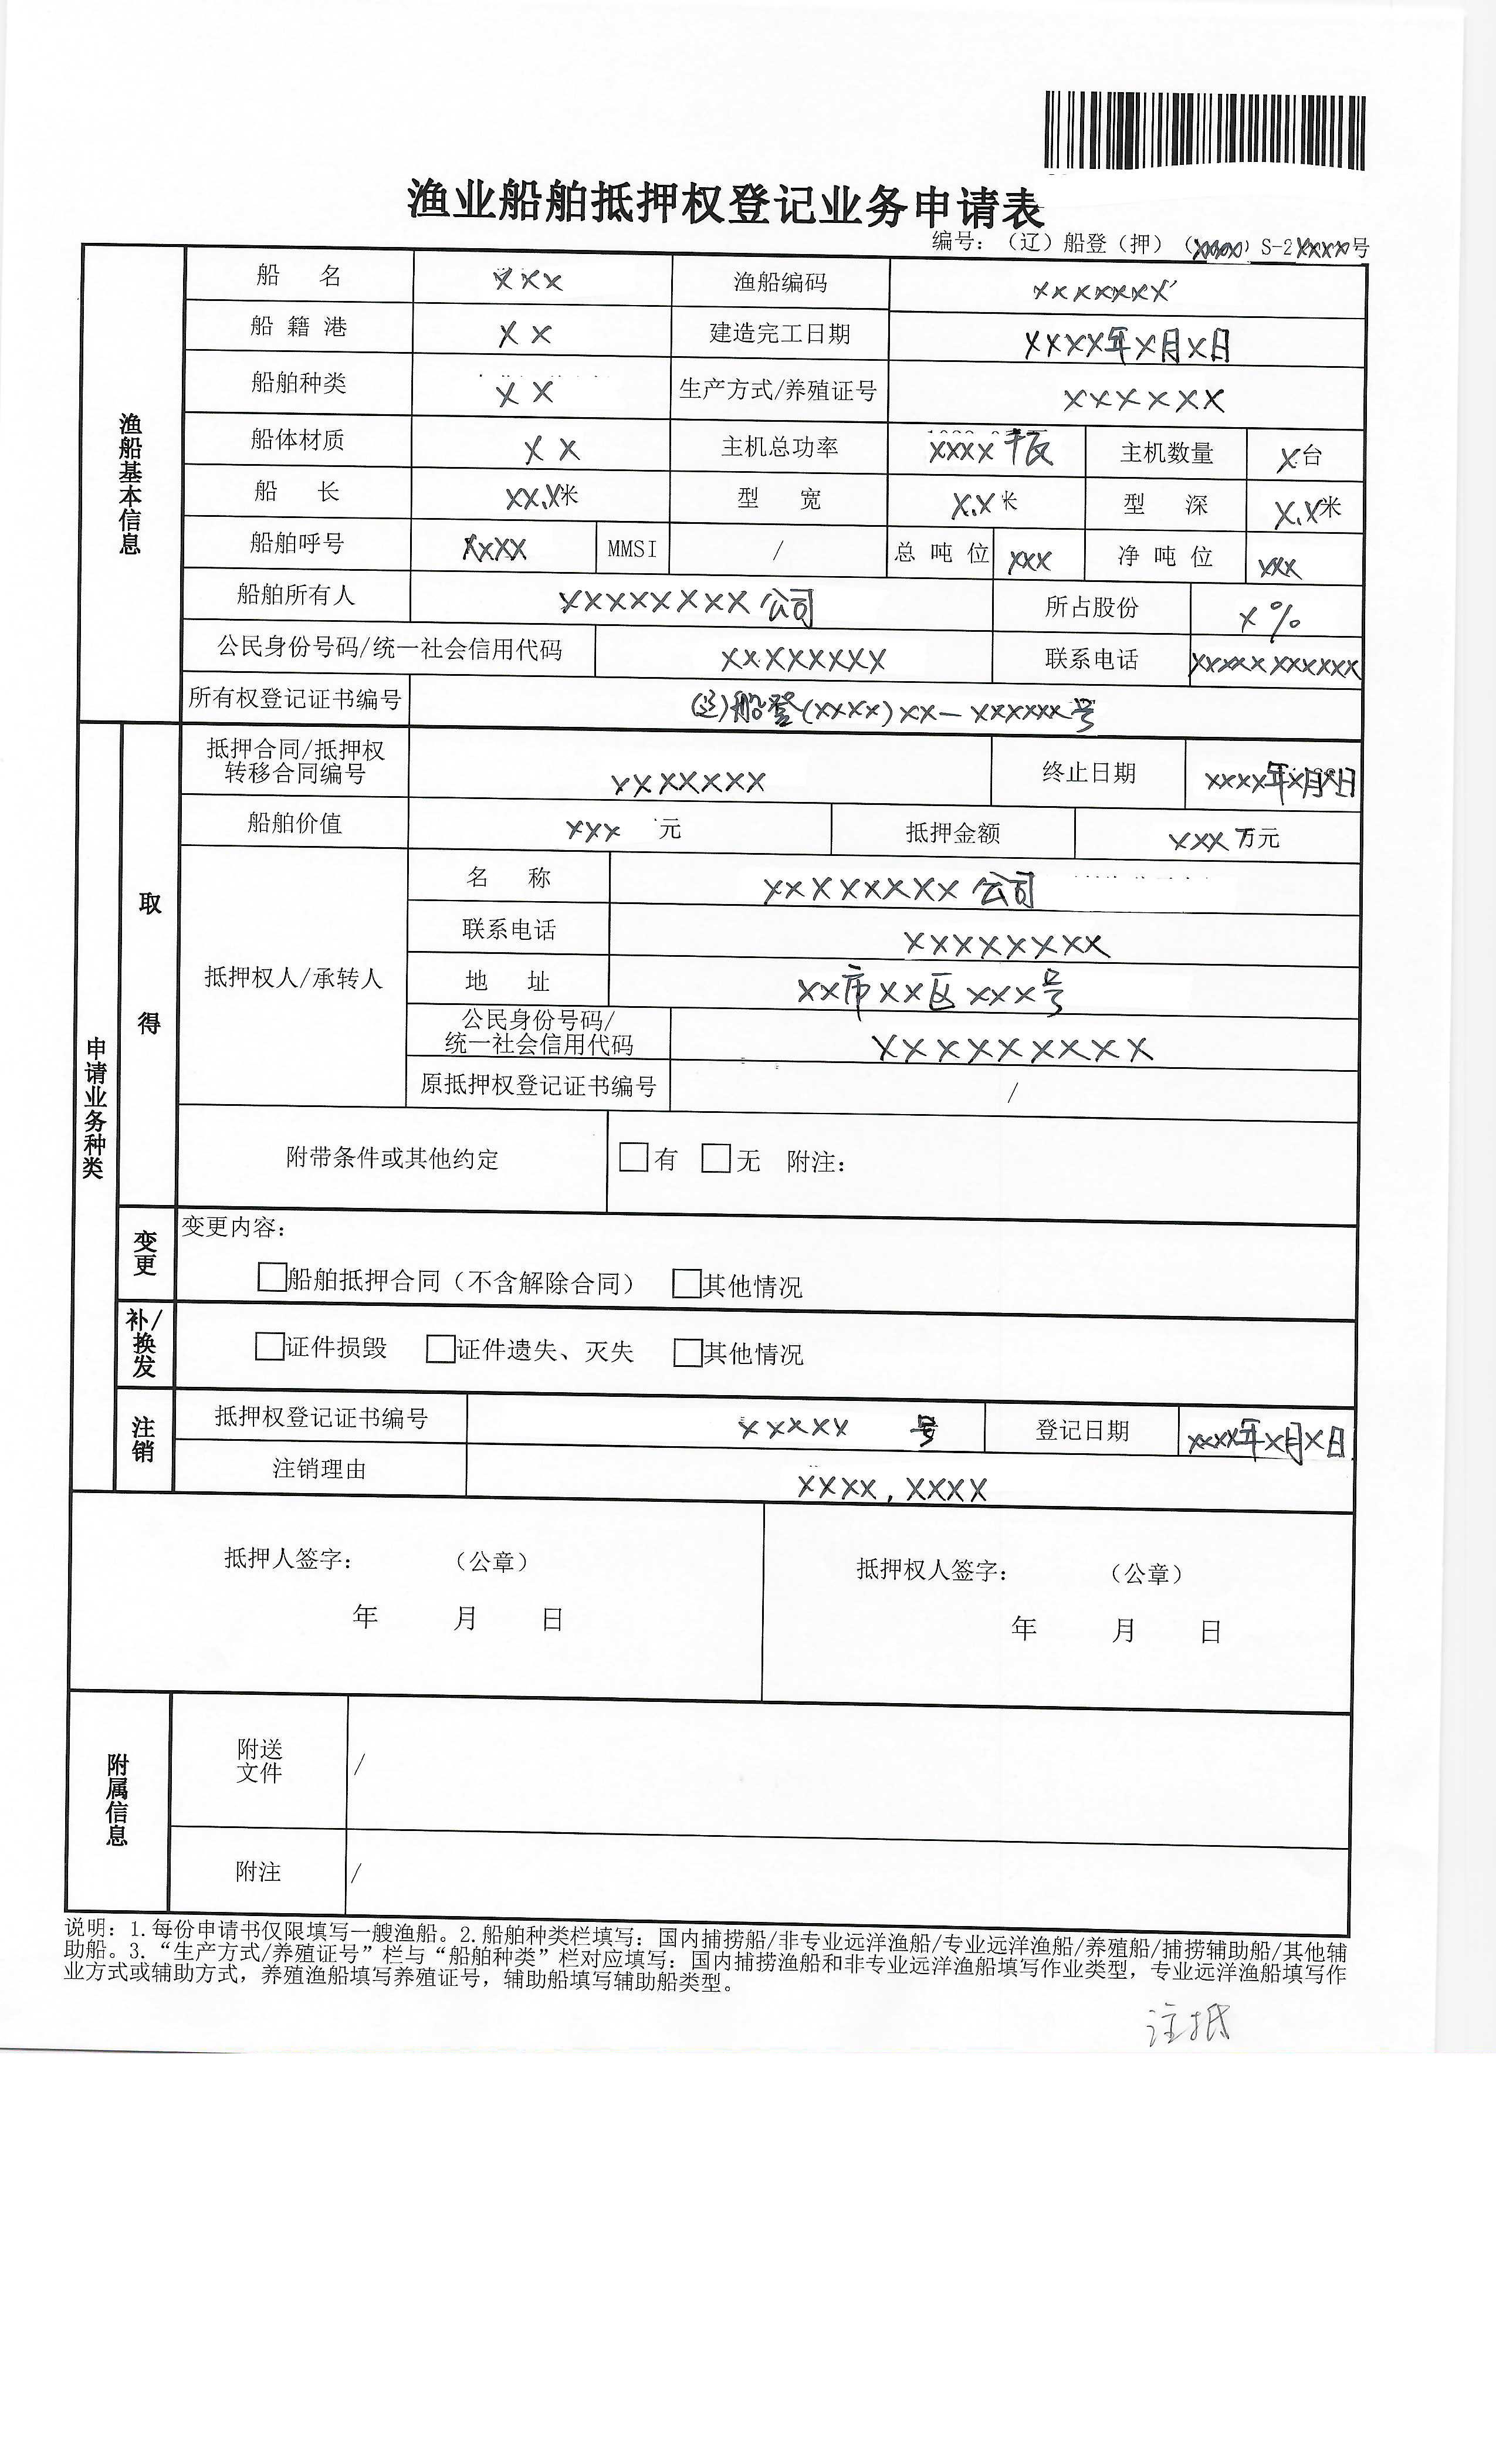 渔业船舶抵押权登记业务申请表
编号：（辽）船登（押）（xxxx）S-2xxxx号
渔船基本信息
船 名 xxx 渔船编码 xxxxxxx
船籍港 xx 建造完工日期 xxxx年x月x日
船舶种类 xx 生产方式/养殖证号 xxxxxx
船体材质 xx 主机总功率 xxxx 千瓦 主机数量 x台
船 长 xx.x米 型 宽 x.x米 型 深 x.x米
船舶呼号 xxxx MMSI / 总吨位 xxx 净吨位 xxx
船舶所有人 xxxxxxxx公司 所占股份 x%
公民身份号码/统一社会信用代码 xxxxxxxx 联系电话 xxxxxxxxxxx
所有权登记证书编号 (辽)船登(xxxx)xx-xxxxxx号
申请业务种类
取得
抵押合同/抵押权
转移合同编号 xxxxxxx 终止日期 xxxx年x月x日
船舶价值 xxx 元 抵押金额 xxx万元
抵押权人/承转人
名 称 xxxxxxxx公司
联系电话 xxxxxxxx
地 址 xx市xx区xxx号
公民身份号码/
统一社会信用代码 xxxxxxxxx
原抵押权登记证书编号 /
附带条件或其他约定 □有 □无 附注：
变更
变更内容：
□船舶抵押合同（不含解除合同） □其他情况
补/换发
□证件损毁 □证件遗失、灭失 □其他情况
注销
抵押权登记证书编号 xxxxx 号 登记日期 xxxx年x月x日
注销理由 xxxx，xxxx
抵押人签字： （公章） 抵押权人签字： （公章）
年 月 日 年 月 日
附属信息
附送
文件 /
附注 /
说明：1.每份申请书仅限填写一艘渔船。2.船舶种类栏填写：国内捕捞船/非专业远洋渔船/专业远洋渔船/养殖船/捕捞辅助船/其他辅
助船。3.“生产方式/养殖证号”栏与“船舶种类”栏对应填写：国内捕捞渔船和非专业远洋渔船填写作业类型，专业远洋渔船填写作
业方式或辅助方式，养殖渔船填写养殖证号，辅助船填写辅助船类型。
注抵